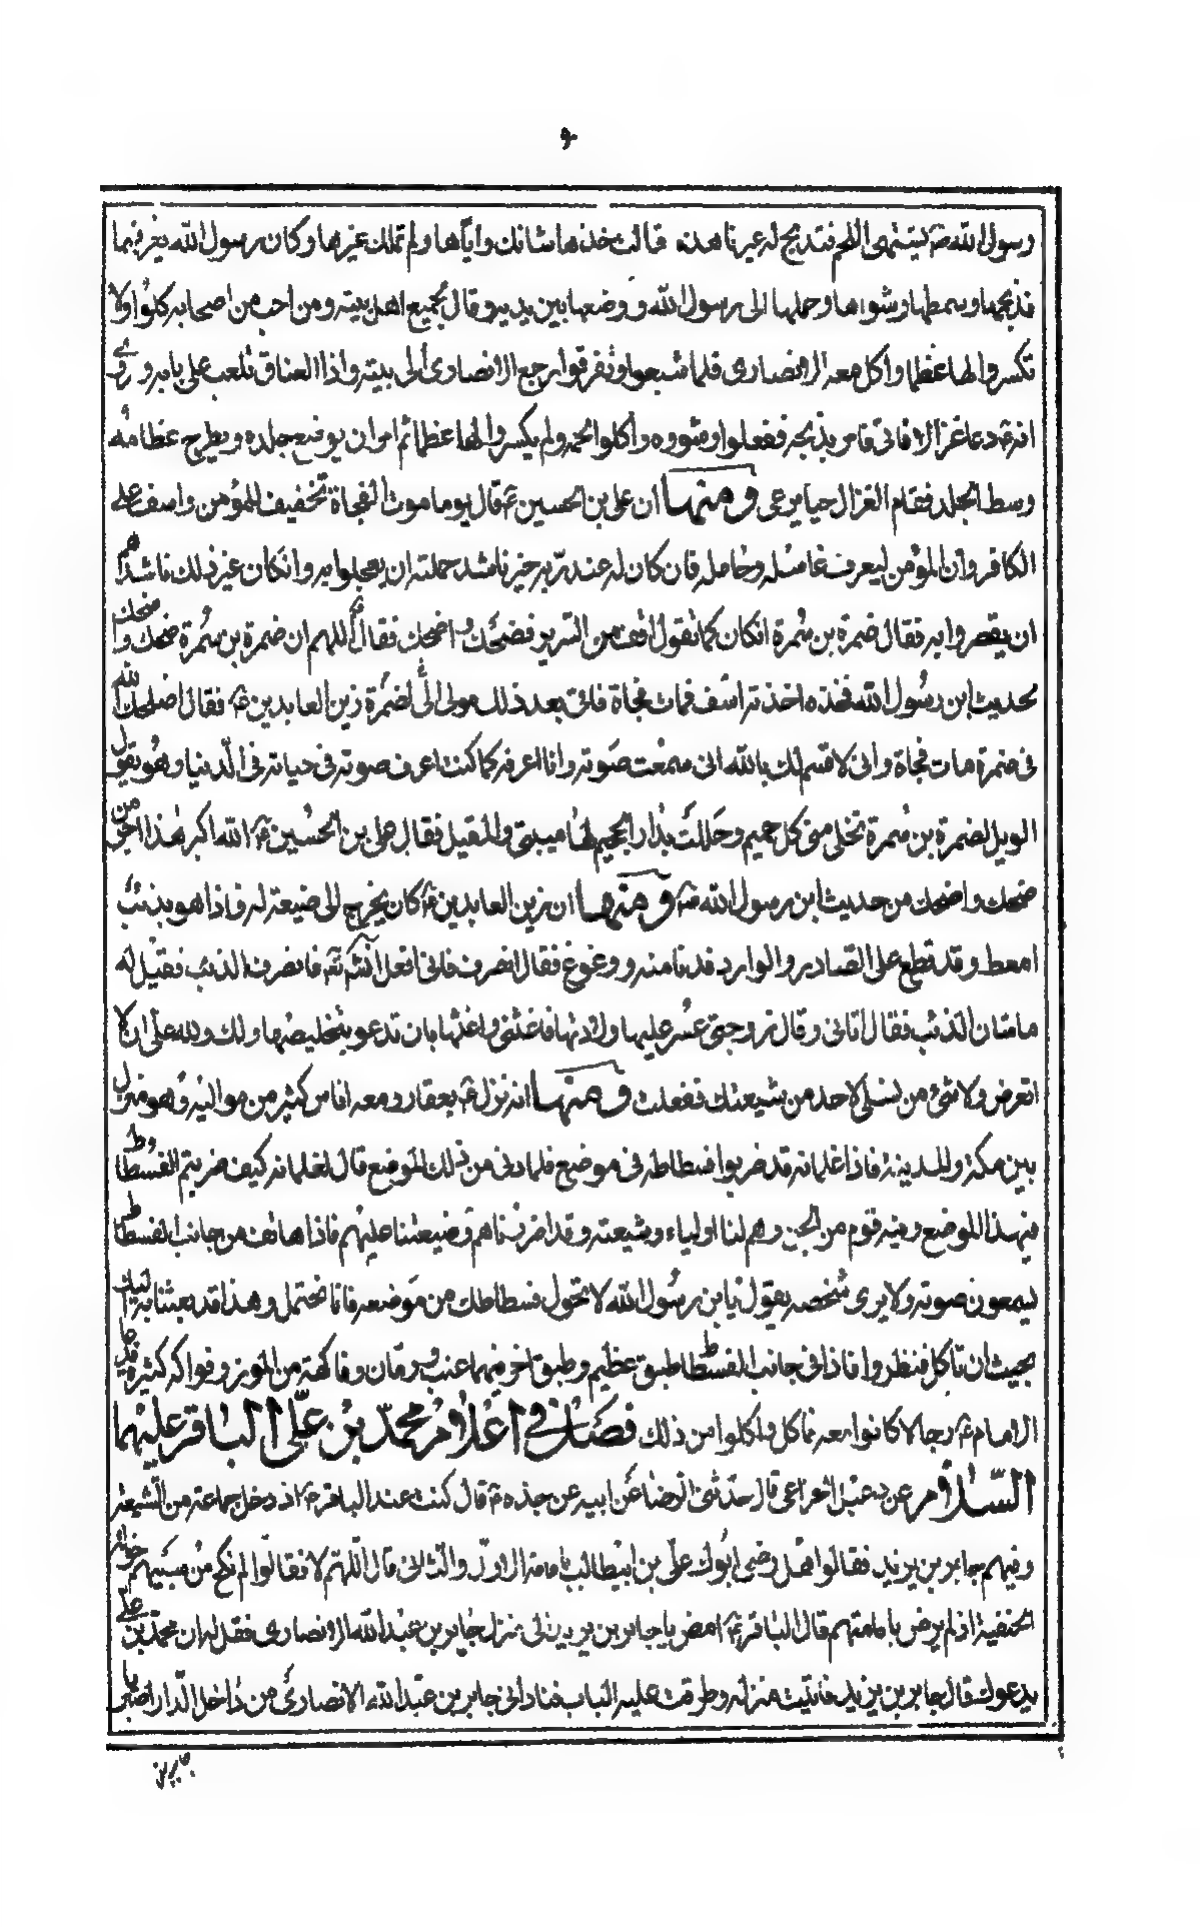 رسول الله ص يشتهى اللحم فتذبح له عيرنا هذه قالت خذها شانك واياها ولم تملك غيرها وكان رسول الله يعرفهما
فذبحها وسمطها وشواها وحملها الى رسول الله ووضعها بين يديه وقال بجميع اهل بيته ومن احب من اصحابه كلوا ولا
تكسروا لها عظما واكل معه الانصارى فلما شبعوا وتفرقوا رجع الانصارى الى بيته واذا العناق تلعب على بابه وروى
انه دعا غزالا فاتى فامر بذبحه ففعلوا وشووه واكلوا لحمه ولم يكسروا لها عظما ثم امر ان يوضع جلده ويطرح عظامه
وسط الجلد فقام الغزال حيا يرعى ومنها ان على بن الحسين ع قال يوما موت الفجاة تخفيف للمؤمن واسف على
الكافر وان المؤمن ليعرف غاسله وحامله فان كان له عند ربه خير ناشد حملته ان يعجلوا به وان كان غير ذلك ناشدهم
ان يقصروا به فقال ضمرة بن سمرة ان كان كما تقول اقفز من السرير فضحك واضحك فقال ع اللهم ان ضمرة بن سمرة ضحك واضحك
بحديث ابن رسول الله فخذه اخذة اسف فمات فجاة فاتى بعد ذلك مولى لضمرة زين العابدين ع فقال اصلحك الله
ان ضمرة مات فجاة وانى لاقسم لك بالله انى سمعت صوته وانا اعرفه كما كنت اعرف صوته فى حياته فى الدنيا وهو يقول
الويل لضمرة بن سمرة تخلى منى كل حميم وحللت بدار الجحيم بها مبيتى والمقيل فقال على بن الحسين ع الله اكبر هذا اجر من
ضحك واضحك من حديث ابن رسول الله ص ومنها ان زين العابدين ع كان يخرج الى ضيعة له فاذا هو بذئب
امعط وقد قطع على الصادر والوارد فدنا منه ووعوع فقال انصرف فانى افعل انش تع فانصرف الذئب فقيل له
ما شان الذئب فقال اتانى وقال زوجتى عسر عليها ولادتها فاغثنى واغثها بان تدعو بتخليصها ولك ولله على ان لا
اتعرض ولا شئ من نسلى لاحد من شيعتك ففعلت ومنها انه نزل ع بعقار ومعه اناس كثير من مواليه وهو منزل
بين مكة والمدينة فاذا غلمانه قد ضربوا فسطاطه فى موضع فلما دنى من ذلك الموضع قال لغلمانه كيف ضربتم الفسطاط
فى هذا الموضع وفيه قوم من الجن وهم لنا اولياء وشيعة وقد اضرنا هم وضيعنا عليهم فاذا هاتف من جانب الفسطاط
يسمعون صوته ولا يرى شخصه يقول يابن رسول الله لا تحول فسطاطك من موضعه فانا نحتمل وهذا قد بعثنا به اليك
بحيث ان تاكل فنظروا فاذا فى جانب الفسطاط طبق عظيم وطبق اخر فيهما عنب ورمان وفاكهة من الموز وفواكه كثيرة فدعا
الامام ع رجالا كانوا معه فاكل واكلوا من ذلك فصل فى اعلام محمد بن على الباقر عليهما
السلام عن دعبل الخزاعى قال حدثنى الرضا عن ابيه عن جده ع قال كنت عند الباقر ع اذ دخل جماعة من الشيعة
وفيهم جابر بن يزيد فقالوا هل رضى ابوك على بن ابيطالب بامامة الاول والثانى قال اللهم لا فقالوا لم نكح من سبيهم خولة
الحنفية اذ لم يرض بامامتهم قال الباقر ع امض يا جابر بن يزيد الى منزل جابر بن عبد الله الانصارى فقل له ان محمد بن على
يدعوك قال جابر بن يزيد فاتيت منزله وطرقت عليه الباب فنادانى جابر بن عبد الله الانصارى من داخل الدار اصبر يا